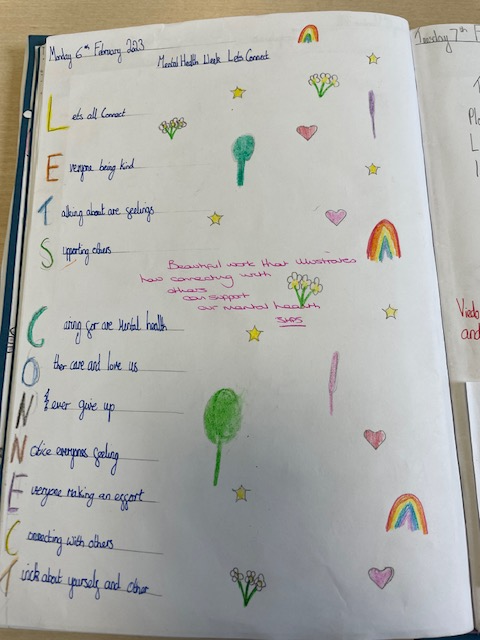 Monday 6th February 2023
Mental Health Week Lets Connect
Lets all Connect
Everyone being kind
Talking about are feelings
Supporting others
Beautiful work that illustrates
how connecting with
others
can support
our mental health
Caring for are Mental health
Other care and love us
Never give up
Notice everyones feeling
Everyone making an effort
Connecting with others
Think about yourself and other
Tuesday 7th F
Pl
L
Viedo
and